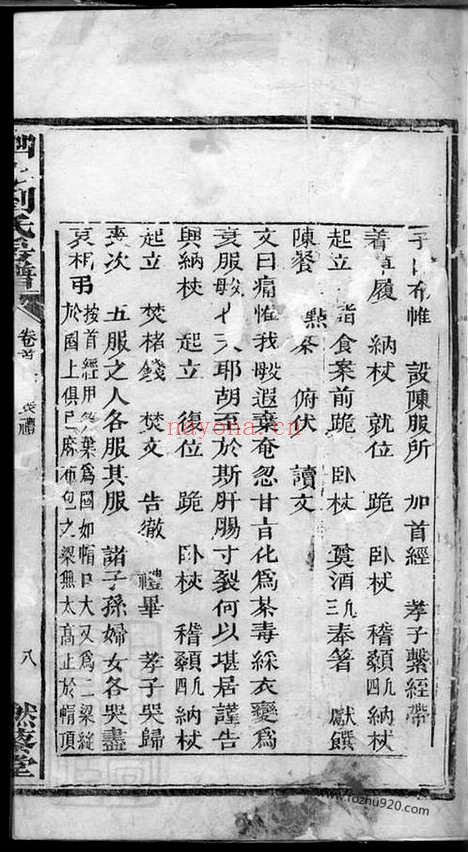 布帷 設陳服所 加首絰 孝子繫絰帶
着 履 納杖 就位 跪 臥杖 稽顙凡四 納杖
起立 詣食案前跪 臥杖 奠酒凡三 奉箸 獻饌
陳餐 點茶 俯伏 讀文
文曰痛惟我 遐棄奄忽甘旨化爲荼毒綵衣變爲
衰服 天耶胡至於斯肝腸寸裂何以堪居謹告
興納杖 起立 復位 跪 臥杖 稽顙凡四 納杖
起立 焚楮錢 焚文 告徹 禮畢 孝子哭歸
喪次 五服之人各服其服 諸子孫婦女各哭盡
哀相弔 按首絰用 葉爲圈如帽口大又爲二梁縫
於圈上俱 麻布包之梁無太高止於帽頂
劉氏 譜
卷首
八
然藜堂
nayona.cn
www.fozhu920.com